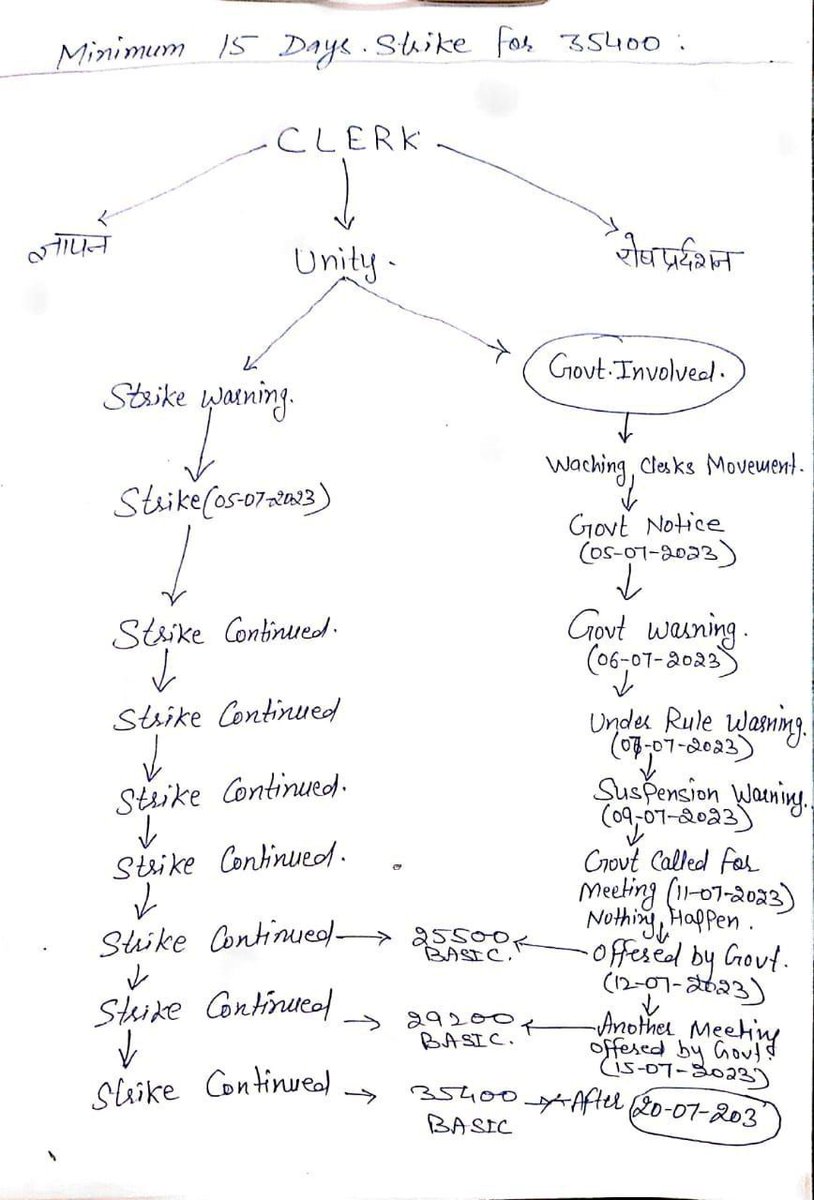 Minimum 15 Days. Strike for 35400 :
CLERK
ज्ञापन
Unity.
रोष प्रर्दशन
Strike Warning.
Govt. Involved.
Waching Clerks Movement.
Strike (05-07-2023)
Govt Notice
(05-07-2023)
Strike Continued.
Govt Warning.
(06-07-2023)
Strike Continued
Under Rule Warning.
(07-07-2023)
Strike Continued.
Suspension Warning.
(09-07-2023)
Strike Continued.
Govt Called for
Meeting (11-07-2023)
Nothing Happen.
Strike Continued
25500
BASIC.
Offered by Govt.
(12-07-2023)
Strike Continued
29200
BASIC.
Another Meeting
offered by Govt
(15-07-2023)
Strike Continued
35400
BASIC
After 20-07-203